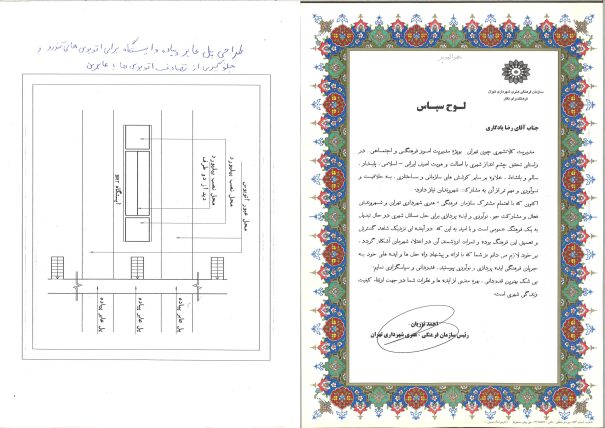 طراحی پل عابر پیاده و ایستگاه برای اتوبوس های تندرو و
جلوگیری از تصادف اتوبوس ها با عابرین
محل عبور اتوبوس
محل نصب بیلبورد
محل نصب بیلبورد
دید از دو طرف
ایستگاه BRT
پل عابر پیاده
پل عابر پیاده
پل عابر پیاده
پل عابر پیاده
سازمان فرهنگی هنری شهرداری تهران
لوح سپاس
جناب آقای رضا یادگاری
مدیریت کلانشهری چون تهران بویژه مدیریت امور فرهنگی و اجتماعی در
راستای تحقق چشم انداز شهری با اصالت و هویت اصیل ایرانی - اسلامی، پایدار،
سالم و بانشاط، علاوه بر سایر کوشش های سازمانی و ساختاری، به خلاقیت و
نوآوری و مهم تر از آن به مشارکت شهروندان نیاز دارد.
اکنون که با اهتمام مشترک سازمان فرهنگی - هنری شهرداری تهران و شهروندان
فعال و مشارکت جو، نوآوری و ایده پردازی برای حل مسائل شهری در حال تبدیل
به یک فرهنگ عمومی است و با امید به این که در آینده ای نزدیک شاهد گسترش
و تعمیق این فرهنگ بوده و ثمرات ارزشمند آن در اعتلاء شهرمان آشکار گردد،
بر خود لازم می دانم از شما که با ارائه و پیشنهاد راه حل ها و ایده های خود به
جریان فرهنگی ایده پردازی و نوآوری پیوستید، قدردانی و سپاسگزاری نمایم.
بی شک بهترین قدردانی، بهره مندی از ایده ها و نظرات شما در جهت ارتقاء کیفیت
زندگی شهری است.
احمد نوریان
رئیس سازمان فرهنگی - هنری شهرداری تهران